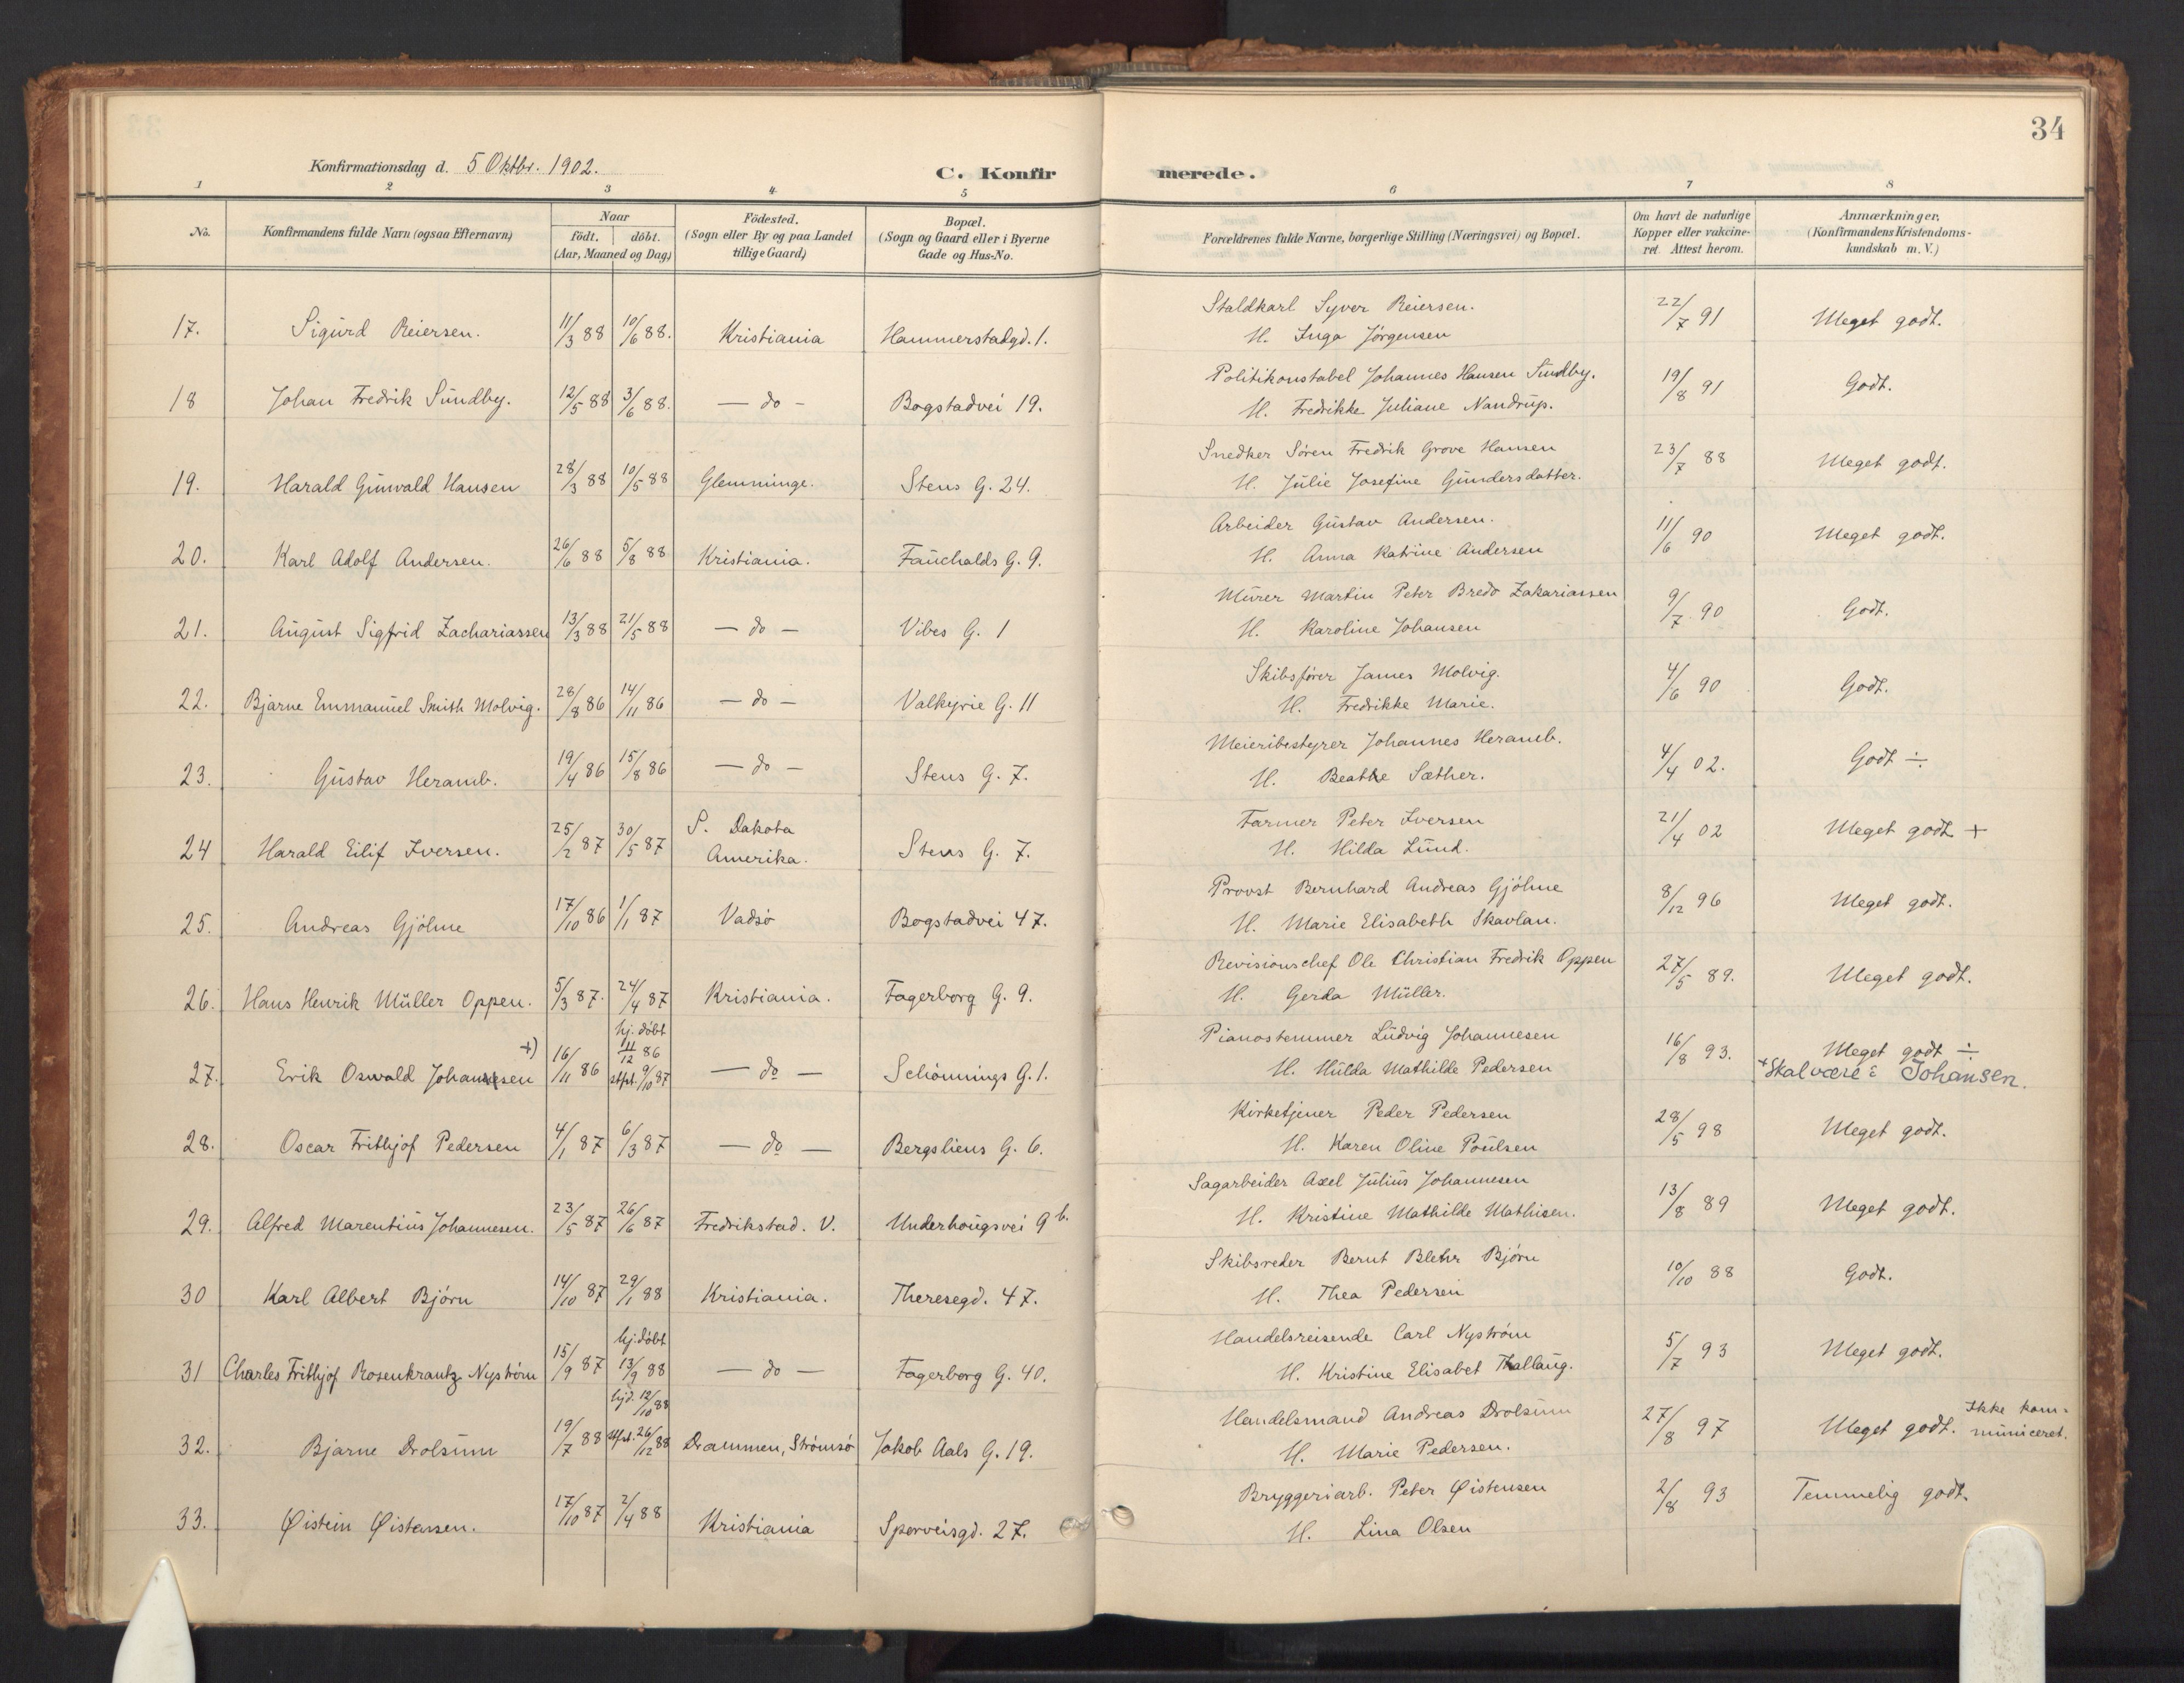 34
Konfirmationsdag d. 5 Oktbr. 1902.
C. Konfirmerede.
1 2 3 4 5 6 7 8
No.
Konfirmandens fulde Navn (ogsaa Efternavn)
Naar
födt. döbt.
(Aar, Maaned og Dag)
Födested.
(Sogn eller By og paa Landet
tillige Gaard)
Bopæl.
(Sogn og Gaard eller i Byerne
Gade og Hus-No.
Forældrenes fulde Navne, borgerlige Stilling (Næringsvei) og Bopæl.
Om havt de naturlige
Kopper eller vakcine-
ret. Attest herom.
Anmærkninger.
(Konfirmandens Kristendoms-
kundskab m. V.)
17. Sigurd Reiersen. 11/3 88 10/6 88. Kristiania Hammerstadgd. 1. Staldkarl Syver Reiersen. 22/7 91 Meget godt.
H. Inga Jörgensen
18 Johan Fredrik Sundby. 12/5 88 3/6 88. — do - Bogstadvei 19. Politikonstabel Johannes Hansen Sundby. 19/8 91 Godt.
H. Fredrikke Juliane Nandrup.
19. Harald Gunvald Hansen 28/3 88 10/5 88 Glemminge. Stens G. 24. Snedker Sören Fredrik Grove Hansen 23/7 88 Meget godt.
H. Julie Josefine Gundersdatter.
20. Karl Adolf Andersen. 26/6 88 5/8 88 Kristiania. Fauchalds G. 9. Arbeider Gustav Andersen. 11/6 90 Meget godt.
H. Anna Katrine Andersen
21. August Sigfrid Zachariassen 13/3 88 21/5 88 — do — Vibes G. 1 Murer Martin Peter Bredo Zakariassen 9/7 90 Godt.
H. Karoline Johansen
22. Bjarne Emmanuel Smith Molvig. 28/8 86 14/11 86 — do — Valkyrie G. 11 Skibsförer James Molvig. 4/6 90 Godt.
H. Fredrikke Marie.
23. Gustav Heramb. 19/4 86 15/8 86 — do — Stens G. 7. Meieribestyrer Johannes Heramb. 4/4 02. Godt ÷
H. Beathe Sæther.
24 Harald Eilif Iversen. 25/2 87 30/5 87 S. Dakota Amerika. Stens G. 7. Farmer Peter Iversen 21/4 02 Meget godt +
H. Hilda Lund.
25. Andreas Gjölme 17/10 86 1/1 87 Vadsö Bogstadvei 47. Provst Bernhard Andreas Gjölme 8/12 96 Meget godt.
H. Marie Elisabeth Skavlan.
26. Hans Henrik Müller Oppen. 5/3 87. 24/4 87 Kristiania. Fagerborg G. 9. Revisionschef Ole Christian Fredrik Oppen 27/5 89. Meget godt.
H. Gerda Müller.
27. Erik Oswald Johannesen +) 16/11 86 hj. döbt 11/12 86 stfst. 9/10 87 — do — Schönnings G. 1. Pianostemmer Ludvig Johannesen 16/8 93. Meget godt ÷
H. Hulda Mathilde Pedersen + Skal være: Johansen.
28. Oscar Frithjof Pedersen 4/1 87 6/3 87 — do — Bergsliens G. 6. Kirketjener Peder Pedersen 28/5 98 Meget godt.
H. Karen Oline Poulsen
29. Alfred Marentius Johannesen. 23/5 87 26/6 87 Fredrikstad. V. Underhaugsvei 9 b. Sagarbeider Axel Julius Johannesen 13/8 89 Meget godt.
H. Kristine Mathilde Mathisen.
30 Karl Albert Björn 14/10 87 29/1 88 Kristiania. Theresegd. 47. Skibsreder Bernt Blehr Björn 10/10 88 Godt.
H. Thea Pedersen
31 Charles Frithjof Rosenkrantz Nyström 15/9 87 hj. döbt 13/9 88 — do — Fagerborg G. 40. Handelsreisende Carl Nyström 5/7 93 Meget godt.
H. Kristine Elisabet Thallaug.
32. Bjarne Drolsum 19/7 88 hjd. 12/10 88 stfst. 26/12 88 Drammen, Strömsö Jakob Aals G. 19. Handelsmand Andreas Drolsum 27/8 97 Meget godt. Ikke kom=
H. Marie Pedersen. municeret.
33. Øistein Øistensen. 17/10 87 2/4 88 Kristiania Sporveisgd. 27. Bryggeriarb. Peter Øistensen 2/8 93 Temmelig godt.
H. Lina Olsen